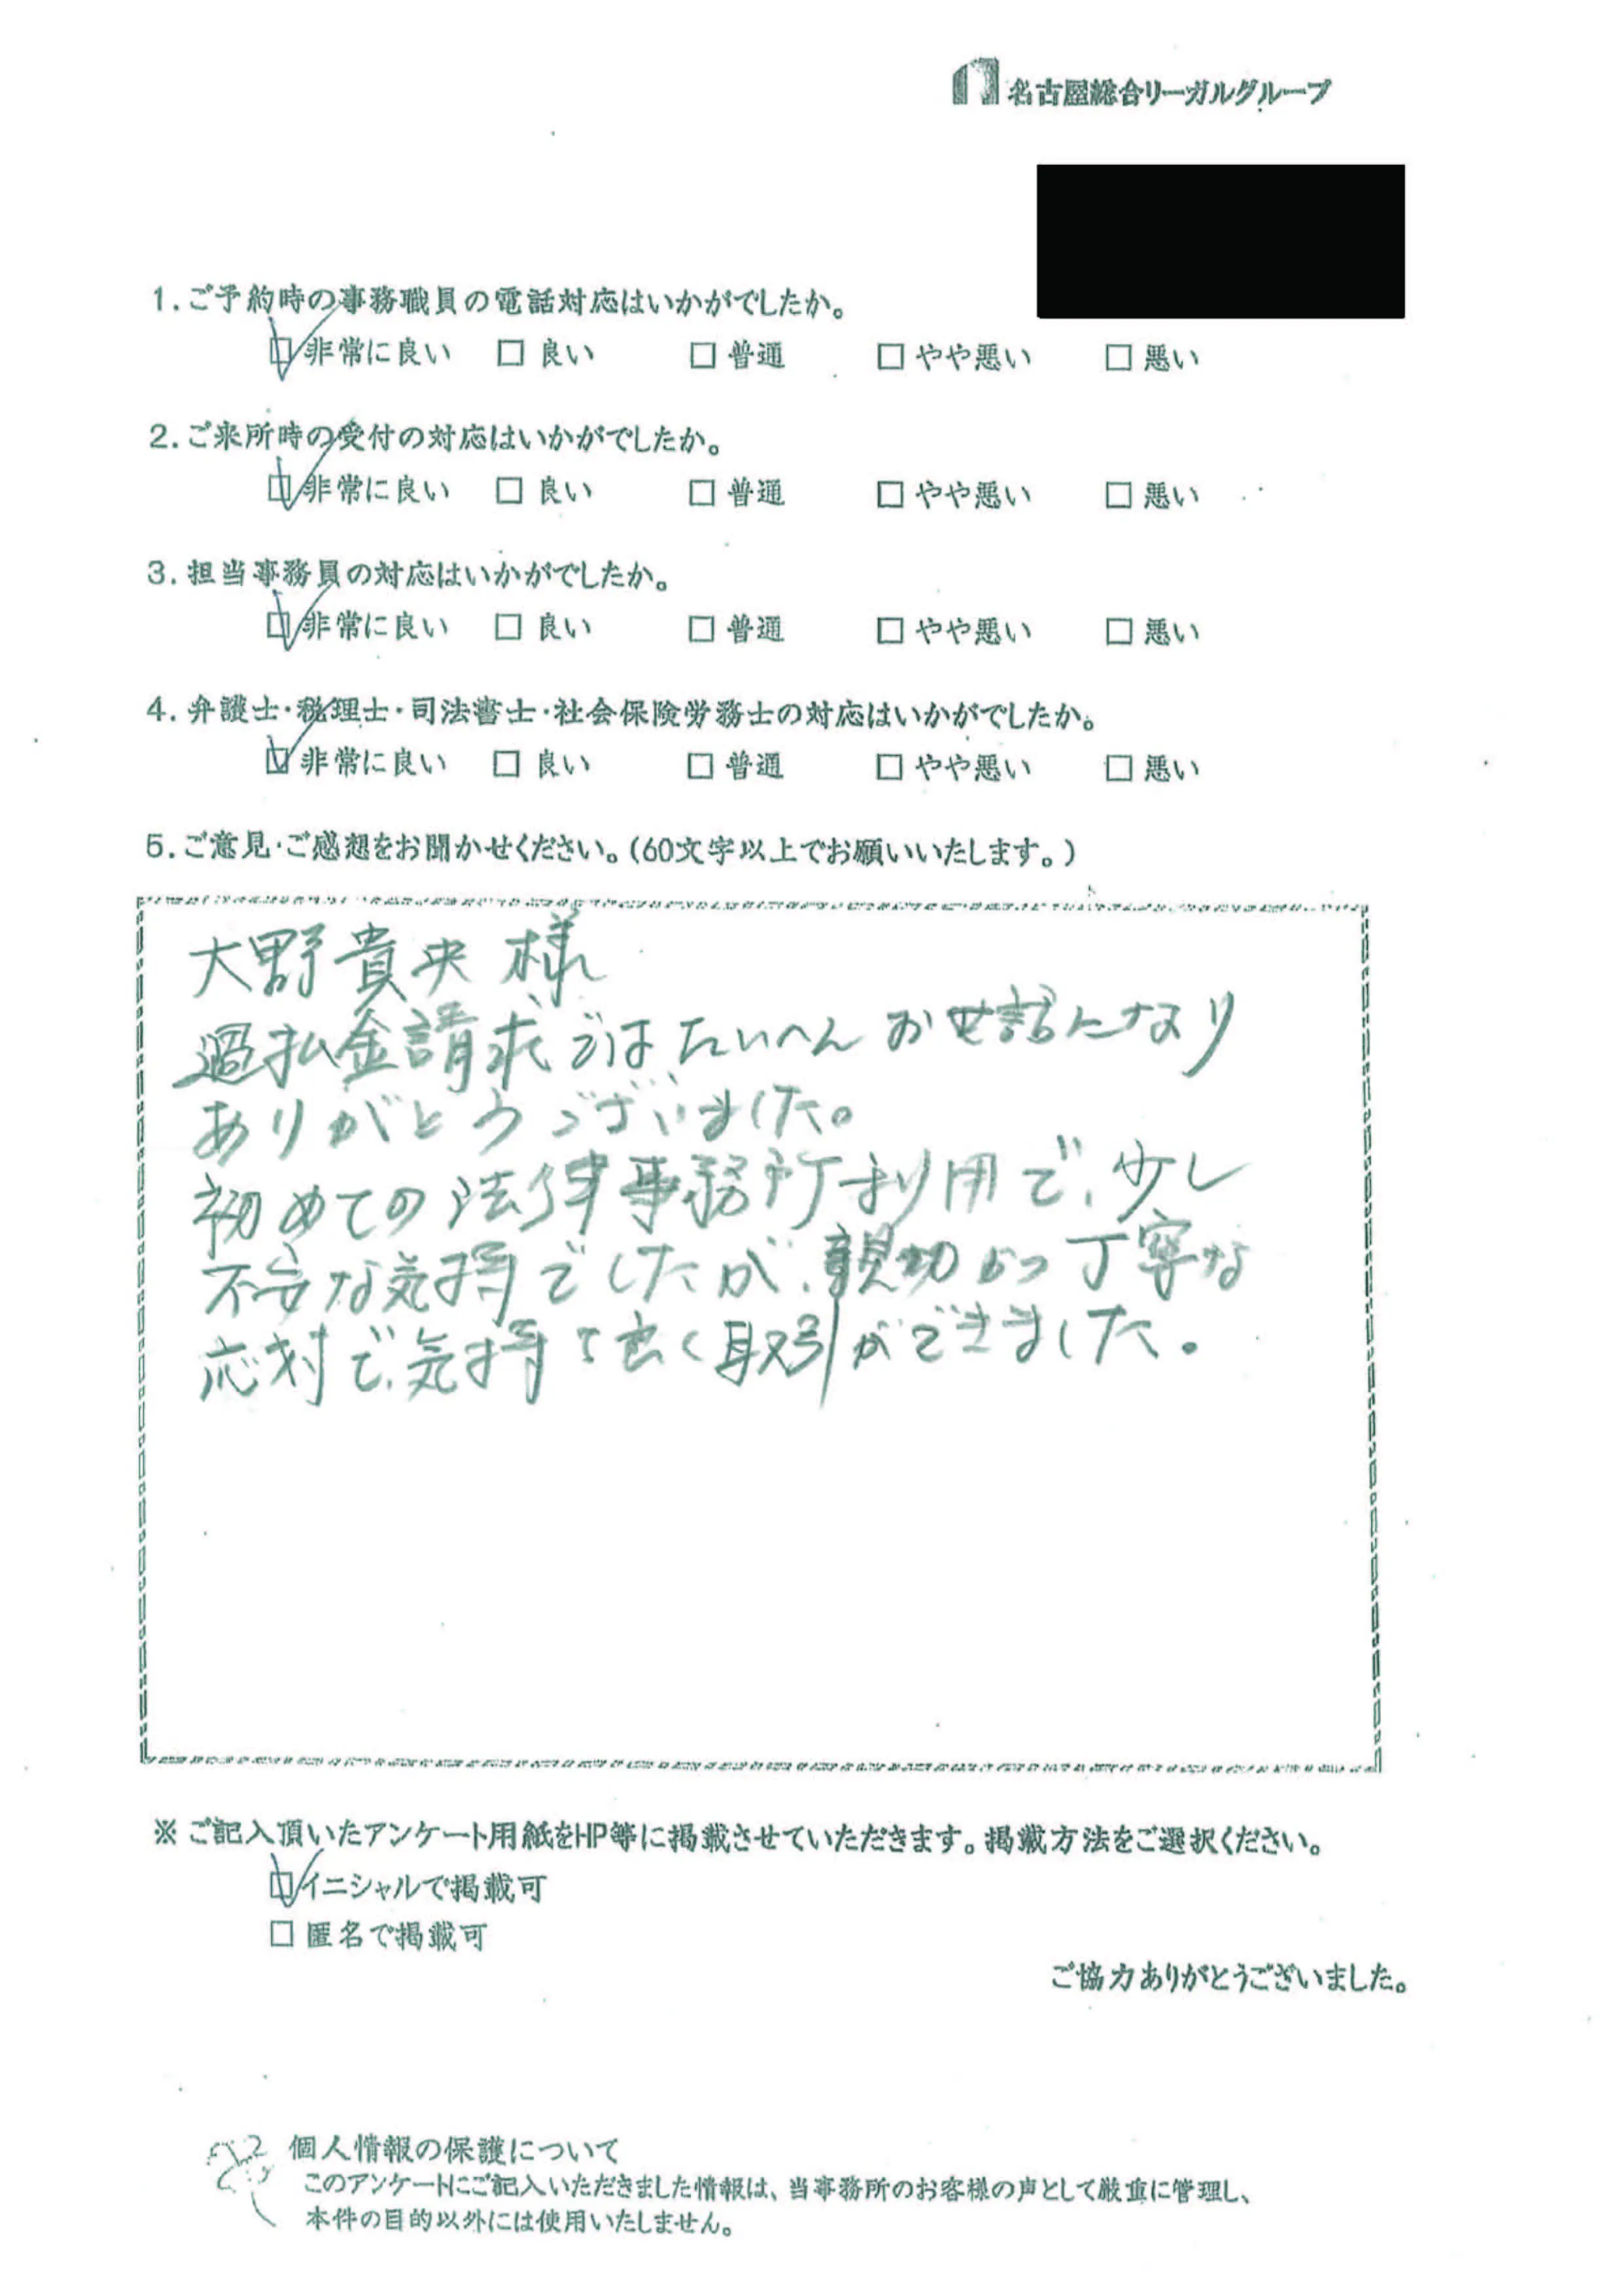 名古屋総合リーガルグループ
1.ご予約時の事務職員の電話対応はいかがでしたか。
☑非常に良い □良い □普通 □やや悪い □悪い
2.ご来所時の受付の対応はいかがでしたか。
☑非常に良い □良い □普通 □やや悪い □悪い
3.担当事務員の対応はいかがでしたか。
☑非常に良い □良い □普通 □やや悪い □悪い
4.弁護士・税理士・司法書士・社会保険労務士の対応はいかがでしたか。
☑非常に良い □良い □普通 □やや悪い □悪い
5.ご意見・ご感想をお聞かせください。(60文字以上でお願いいたします。)
大野貴央様
過払金請求ではたいへんお世話になり
ありがとうございました。
初めての法律事務所利用で、少し
不安な気持でしたが、親切かつ丁寧な
応対で、気持ち良く取引ができました。
※ご記入頂いたアンケート用紙をHP等に掲載させていただきます。掲載方法をご選択ください。
☑イニシャルで掲載可
□匿名で掲載可
ご協力ありがとうございました。
個人情報の保護について
このアンケートにご記入いただきました情報は、当事務所のお客様の声として厳重に管理し、
本件の目的以外には使用いたしません。